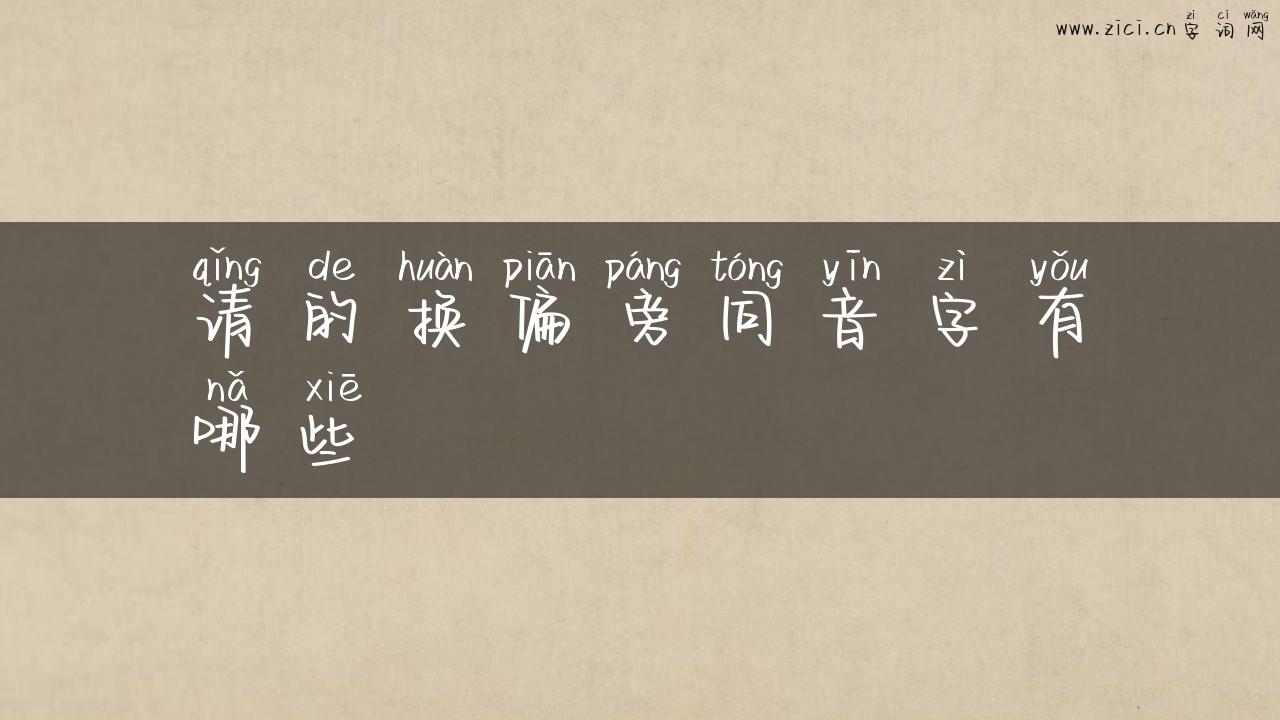 zì cí wǎng
www.zici.cn 字词网
qǐng de huàn piān páng tóng yīn zì yǒu
请的换偏旁同音字有
nǎ xiē
哪些